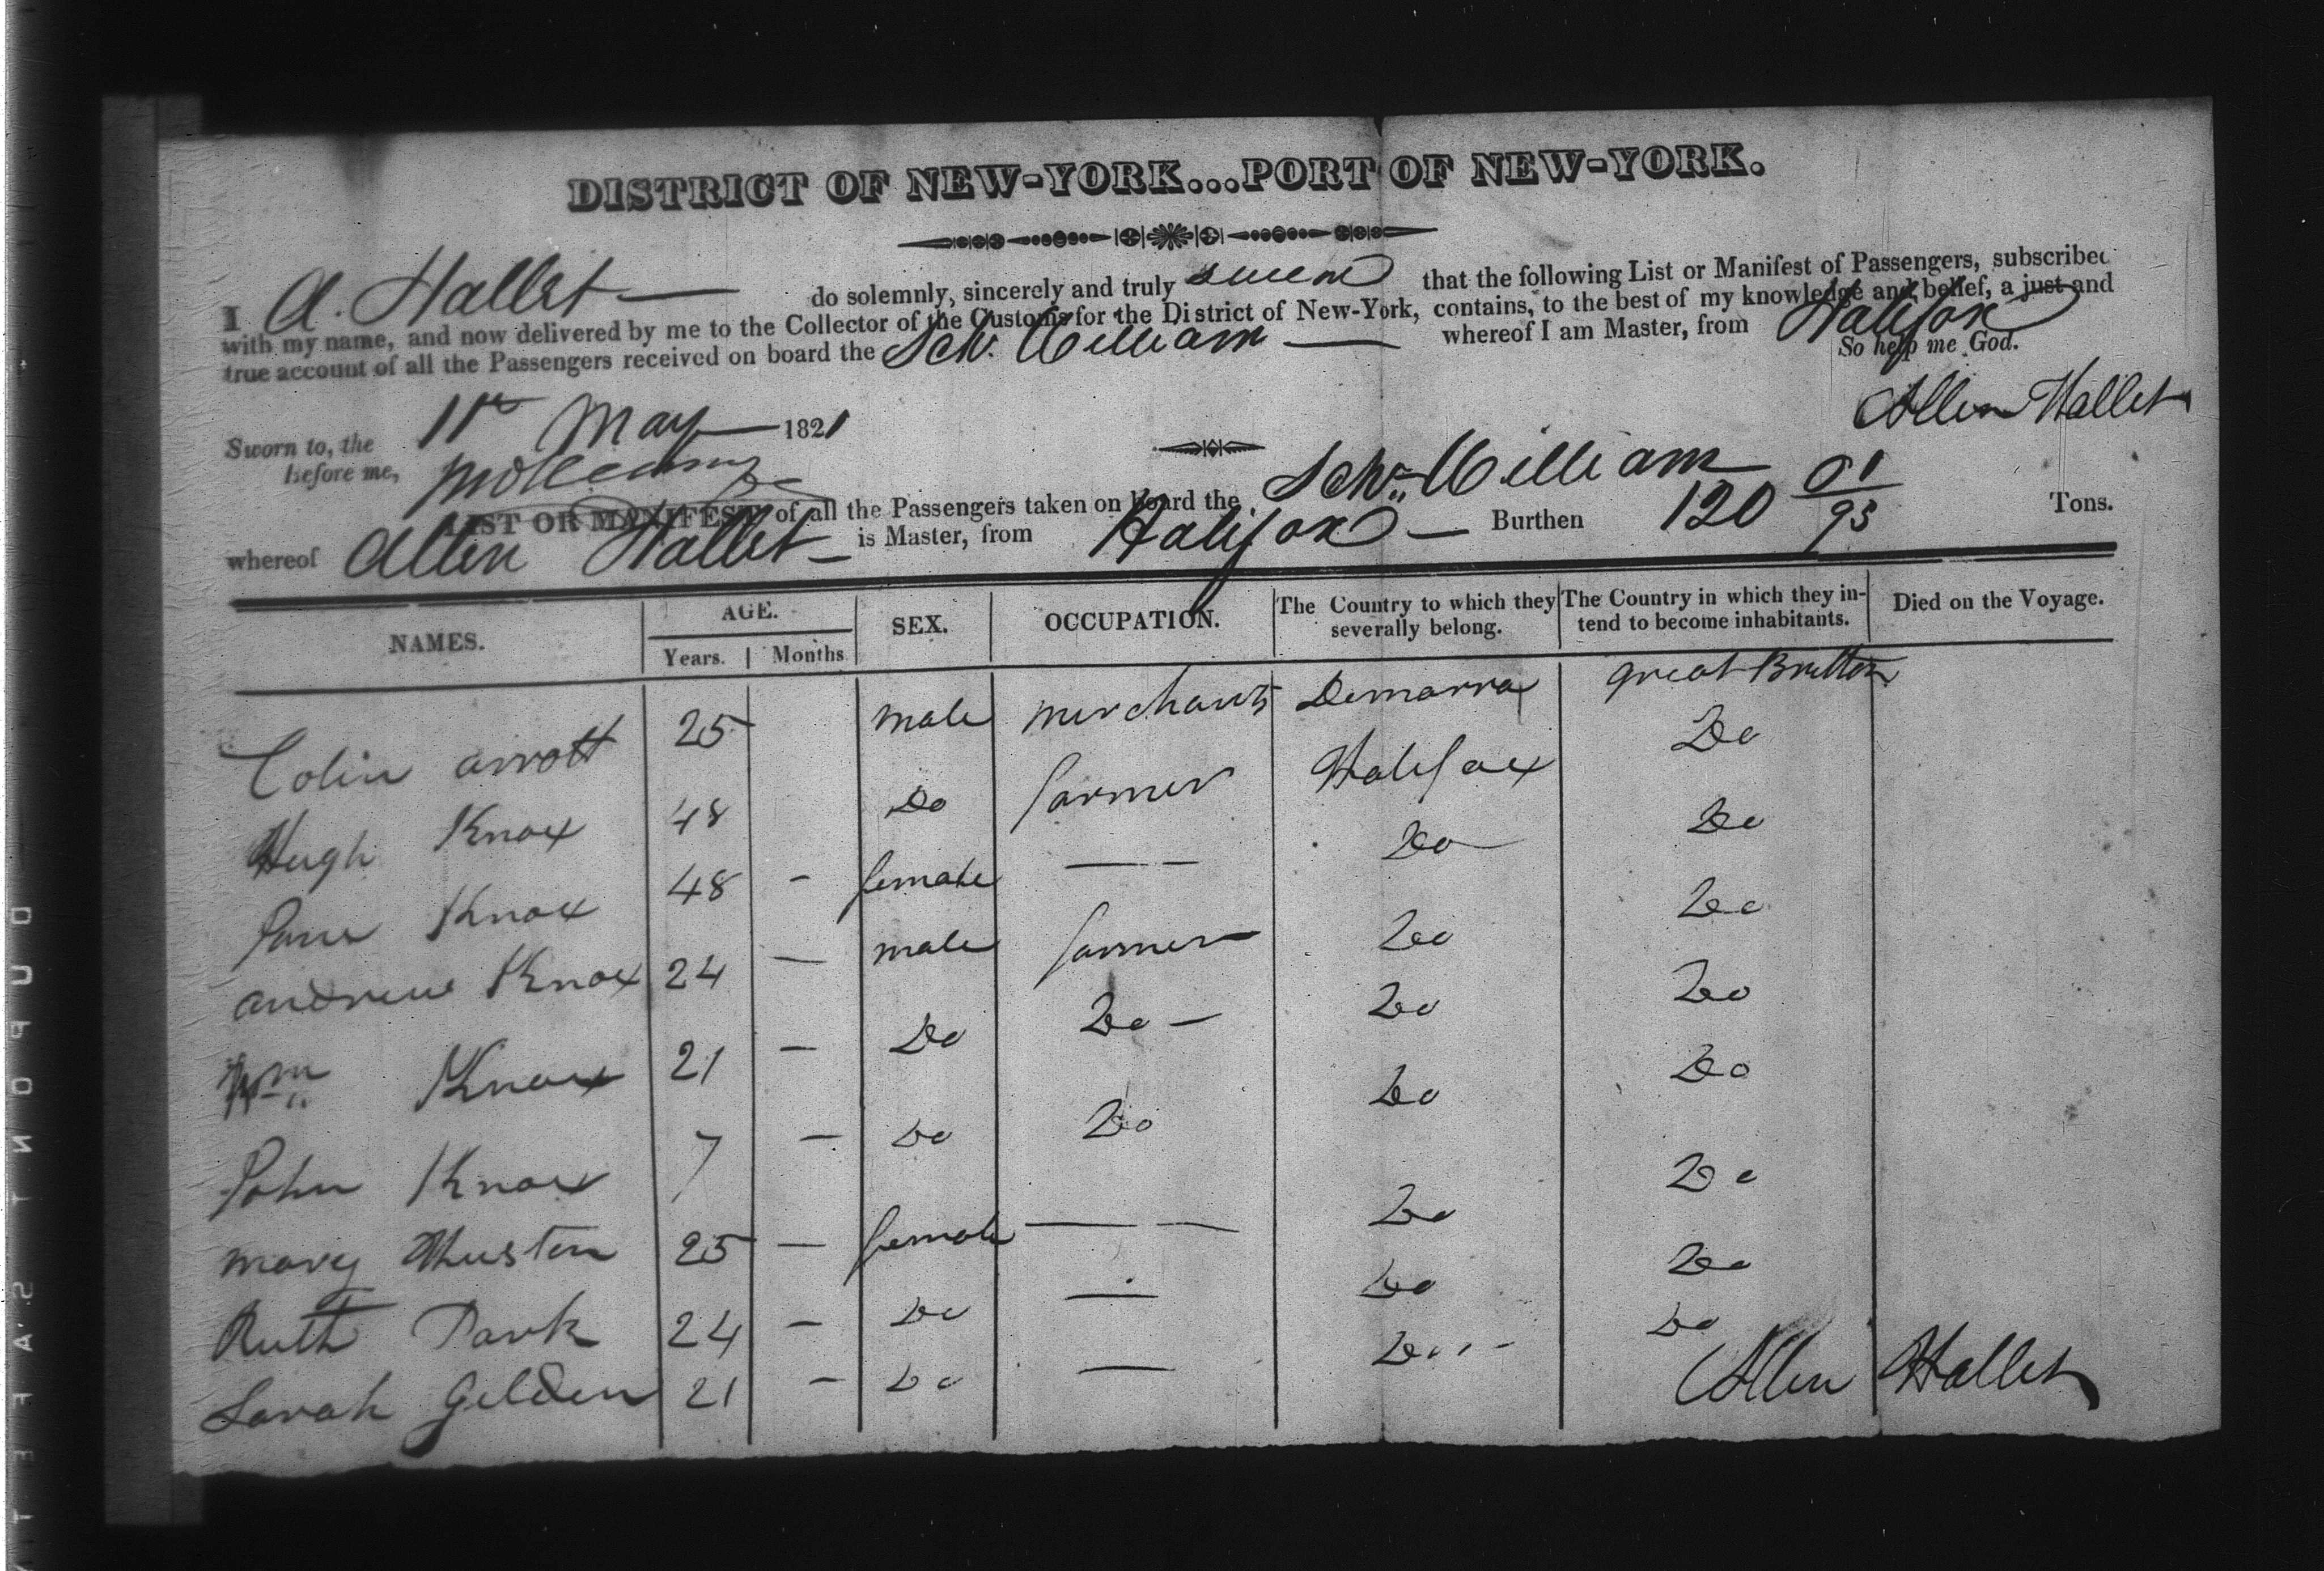 DISTRICT OF NEW-YORK...PORT OF NEW-YORK.
I A. Hallet do solemnly, sincerely and truly that the following List or Manifest of Passengers, subscribed
with my name, and now delivered by me to the Collector of the Customs for the District of New-York, contains, to the best of my knowledge and belief, a just and
true account of all the Passengers received on board the Schr. William whereof I am Master, from Halifax
So help me God.
Allen Hallet
Sworn to, the 11th May 1821
before me,
LIST OR MANIFEST of all the Passengers taken on board the Schr. William
whereof Allen Hallet is Master, from Halifax Burthen 120 01/95 Tons.
NAMES. AGE. Years. Months SEX. OCCUPATION. The Country to which they severally belong. The Country in which they intend to become inhabitants. Died on the Voyage.
Colin arrott 25 male merchant Demarra great Britton
Hugh Knox 48 Do farmer Halifax Do
Jane Knox 48 - female — — Do Do
andrew Knox 24 — male farmer Do Do
Wm Knox 21 — Do Do — Do Do
John Knox 7 — Do Do Do Do
mary Huston 25 — female — — Do Do
Ruth Park 24 - Do — Do Do
Sarah Gelden 21 - Do — Do Do
Allen Hallet
DUPONT SAFETY